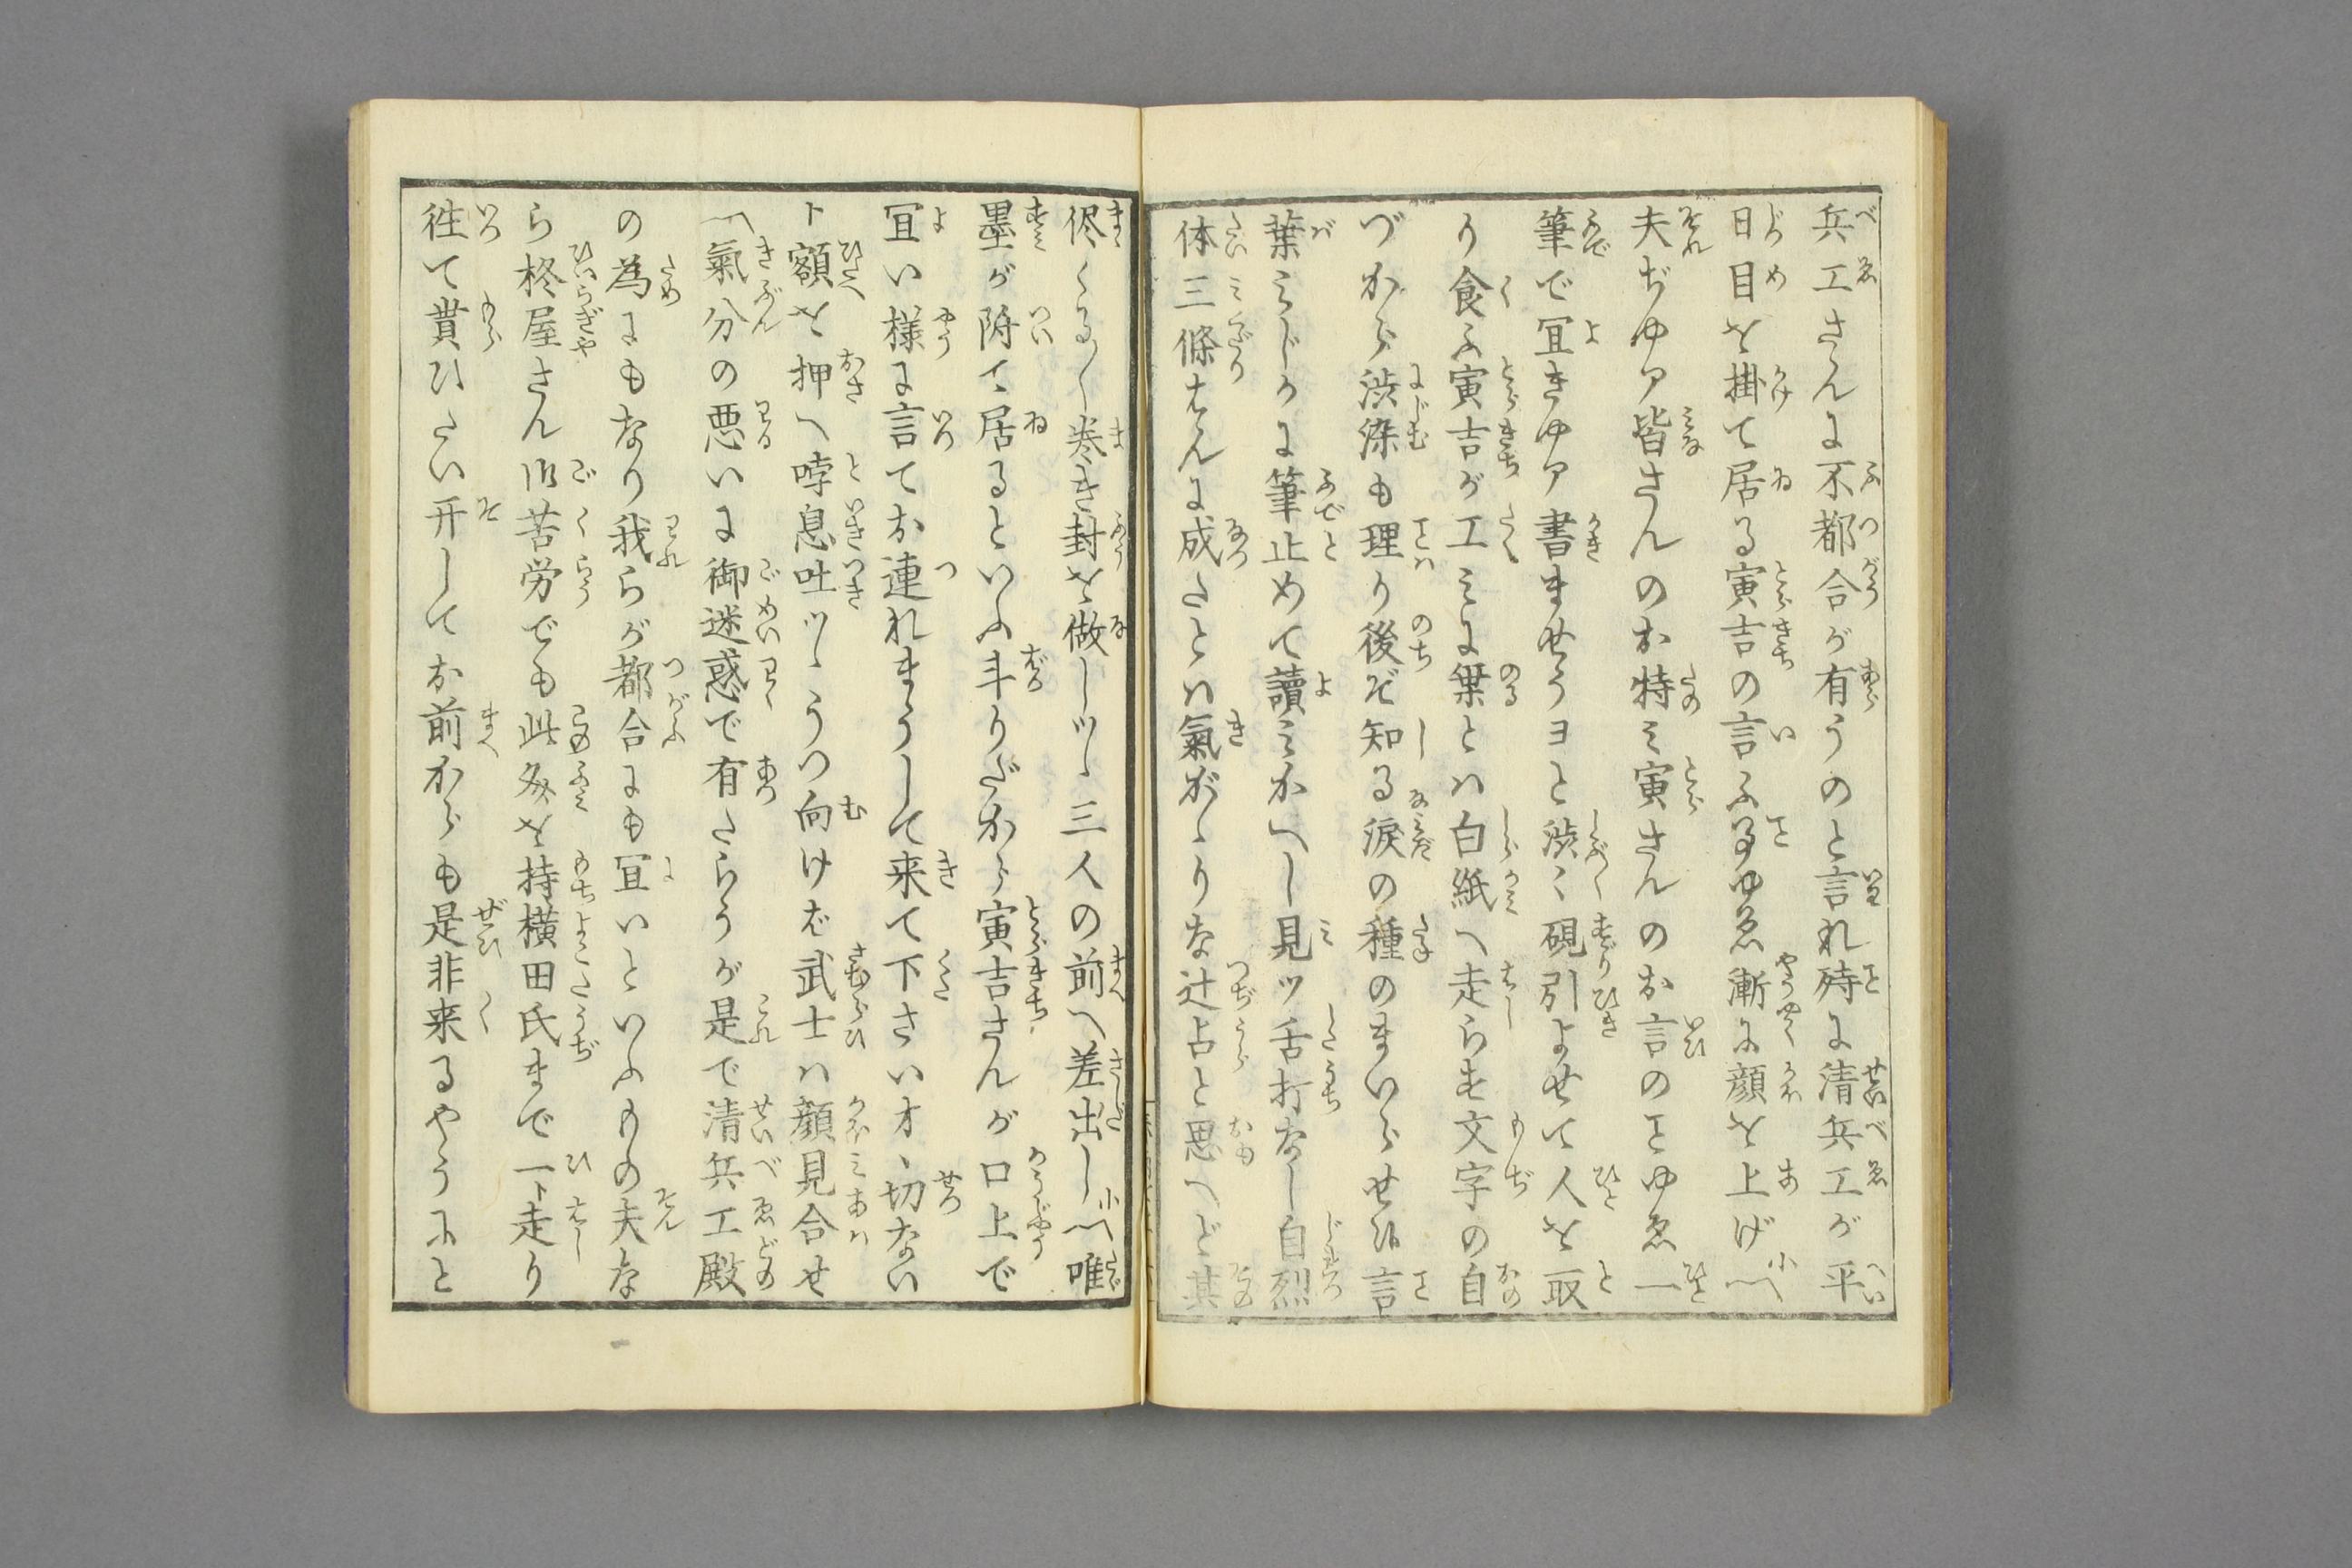 兵エさんに不都合が有うのと言れ時に清兵エが平
日目を掛て居る寅吉の言ふヿゆゑ漸々顔を上げ小
夫ぢゆア皆さんのお特ミ寅さんのお言のヿゆゑ一
筆で冝きゆア書ませうヨと渋々硯引よせて人を取
り食ふ寅吉が工ミに椉とハ白紙へ走らす文字の自
づから渋染も理り後ぞ知る涙の種のまいらせ候言
葉ミじかに筆止めて讀ミかへし見ッ舌打なし自烈
体三條はんに成たとハ氣がゝりな辻占と思へど其
侭くる〳〵巻き封を做しツヽ三人の前へ差出し小唯
墨が附て居るといふ斗りだから寅吉さんが口上で
冝い様に言てお連れまうして来て下さいオヽ切ない
ト額を押へ哱息吐ツヽうつ向けば武士ハ顔見合せ
氣分の悪いに御迷惑で有たらうが是で清兵エ殿
の為にもなり我らが都合にも冝いといふもの夫な
ら柊屋さん御苦労でも此文を持横田氏まで一ト走り
徃て貰ひたい开してお前からも是非来るやうにと